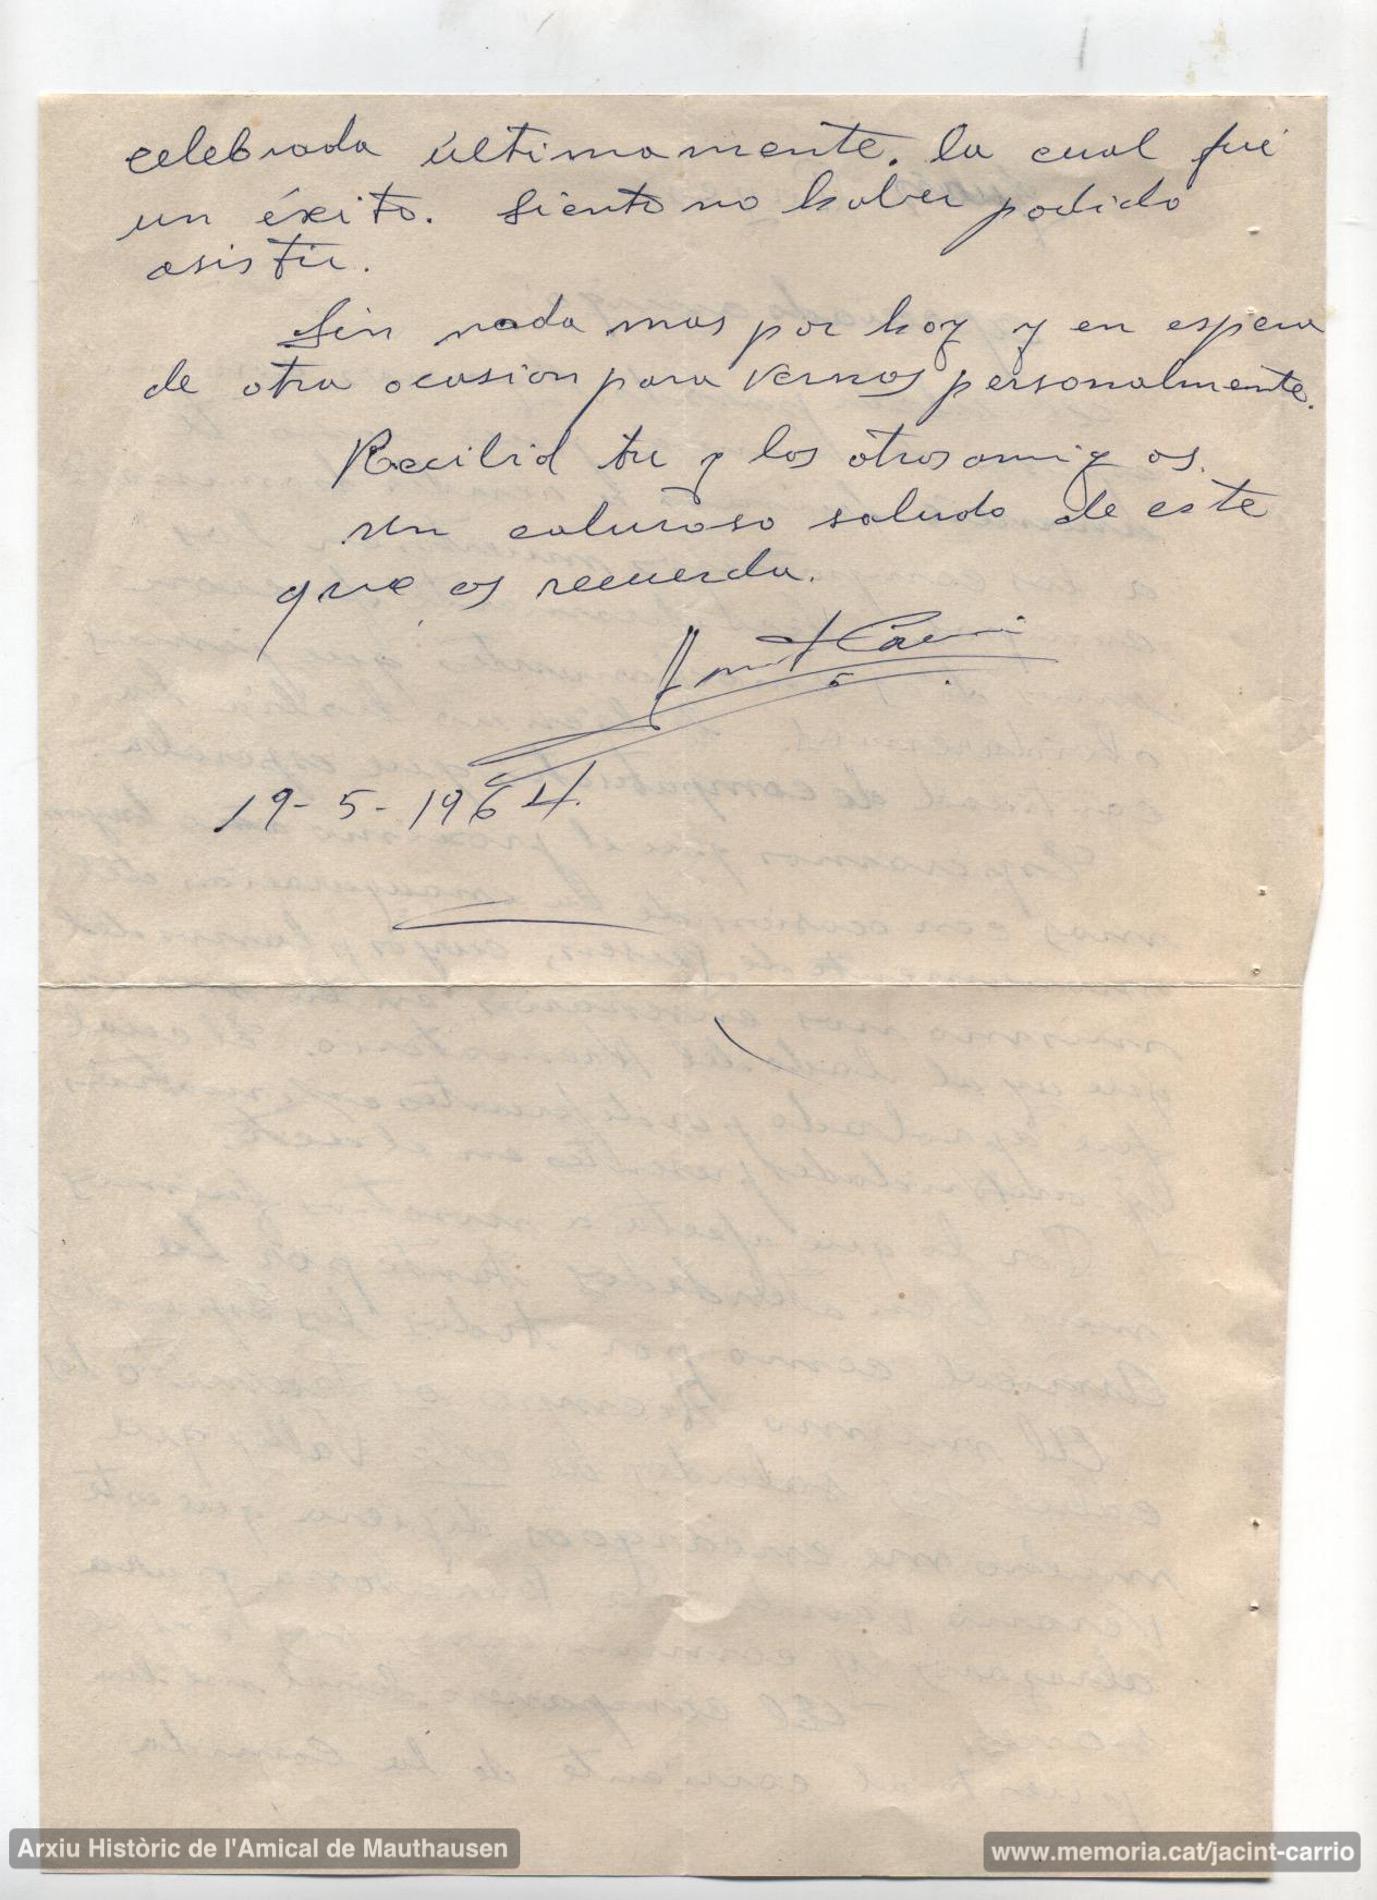 celebrada últimamente. la cual fué
un éxito. Siento no haber podido
asistir.
Sin nada mas por hoy y en espera
de otra ocasion para vernos personalmente.
Recibid tu y los otros amigos.
un caluroso saludo de este
que os recuerda.
19-5-1964.
Arxiu Històric de l'Amical de Mauthausen
www.memoria.cat/jacint-carrio